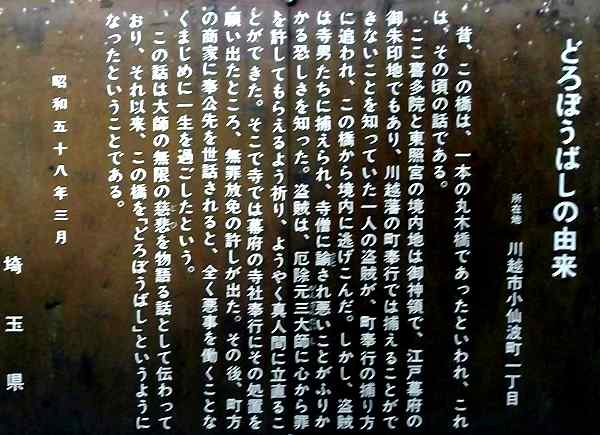 どろぼうばしの由来
所在地　川越市小仙波町一丁目
昔、この橋は、一本の丸木橋であったといわれ、これ
は、その頃の話である。
ここ喜多院と東照宮の境内地は御神領で、江戸幕府の
御朱印地でもあり、川越藩の町奉行では捕えることがで
きないことを知っていた一人の盗賊が、町奉行の捕り方
に追われ、この橋から境内に逃げこんだ。しかし、盗賊
は寺男たちに捕えられ、寺僧に諭され悪いことがふりか
かる恐しさを知った。盗賊は、厄除元三大師に心から罪
を許してもらえるよう祈り、ようやく真人間に立直るこ
とができた。そこで寺では幕府の寺社奉行にその処置を
願い出たところ、無罪放免の許しが出た。その後、町方
の商家に奉公先を世話されると、全く悪事を働くことな
くまじめに一生を過ごしたという。
この話は大師の無限の慈悲を物語る話として伝わって
おり、それ以来、この橋を「どろぼうばし」というように
なったということである。
昭和五十八年三月
埼玉県